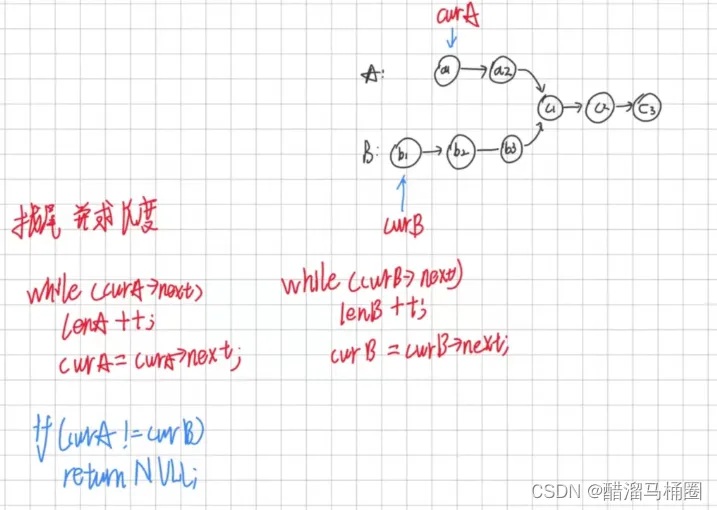 curA
A: a1 a2
c1 c2 c3
B: b1 b2 b3
curB
找尾 并求长度
while (curA->next)
lenA ++;
curA = curA->next;
while (curB->next)
lenB ++;
curB = curB->next;
if (curA != curB)
return NULL;
CSDN @醋溜马桶圈